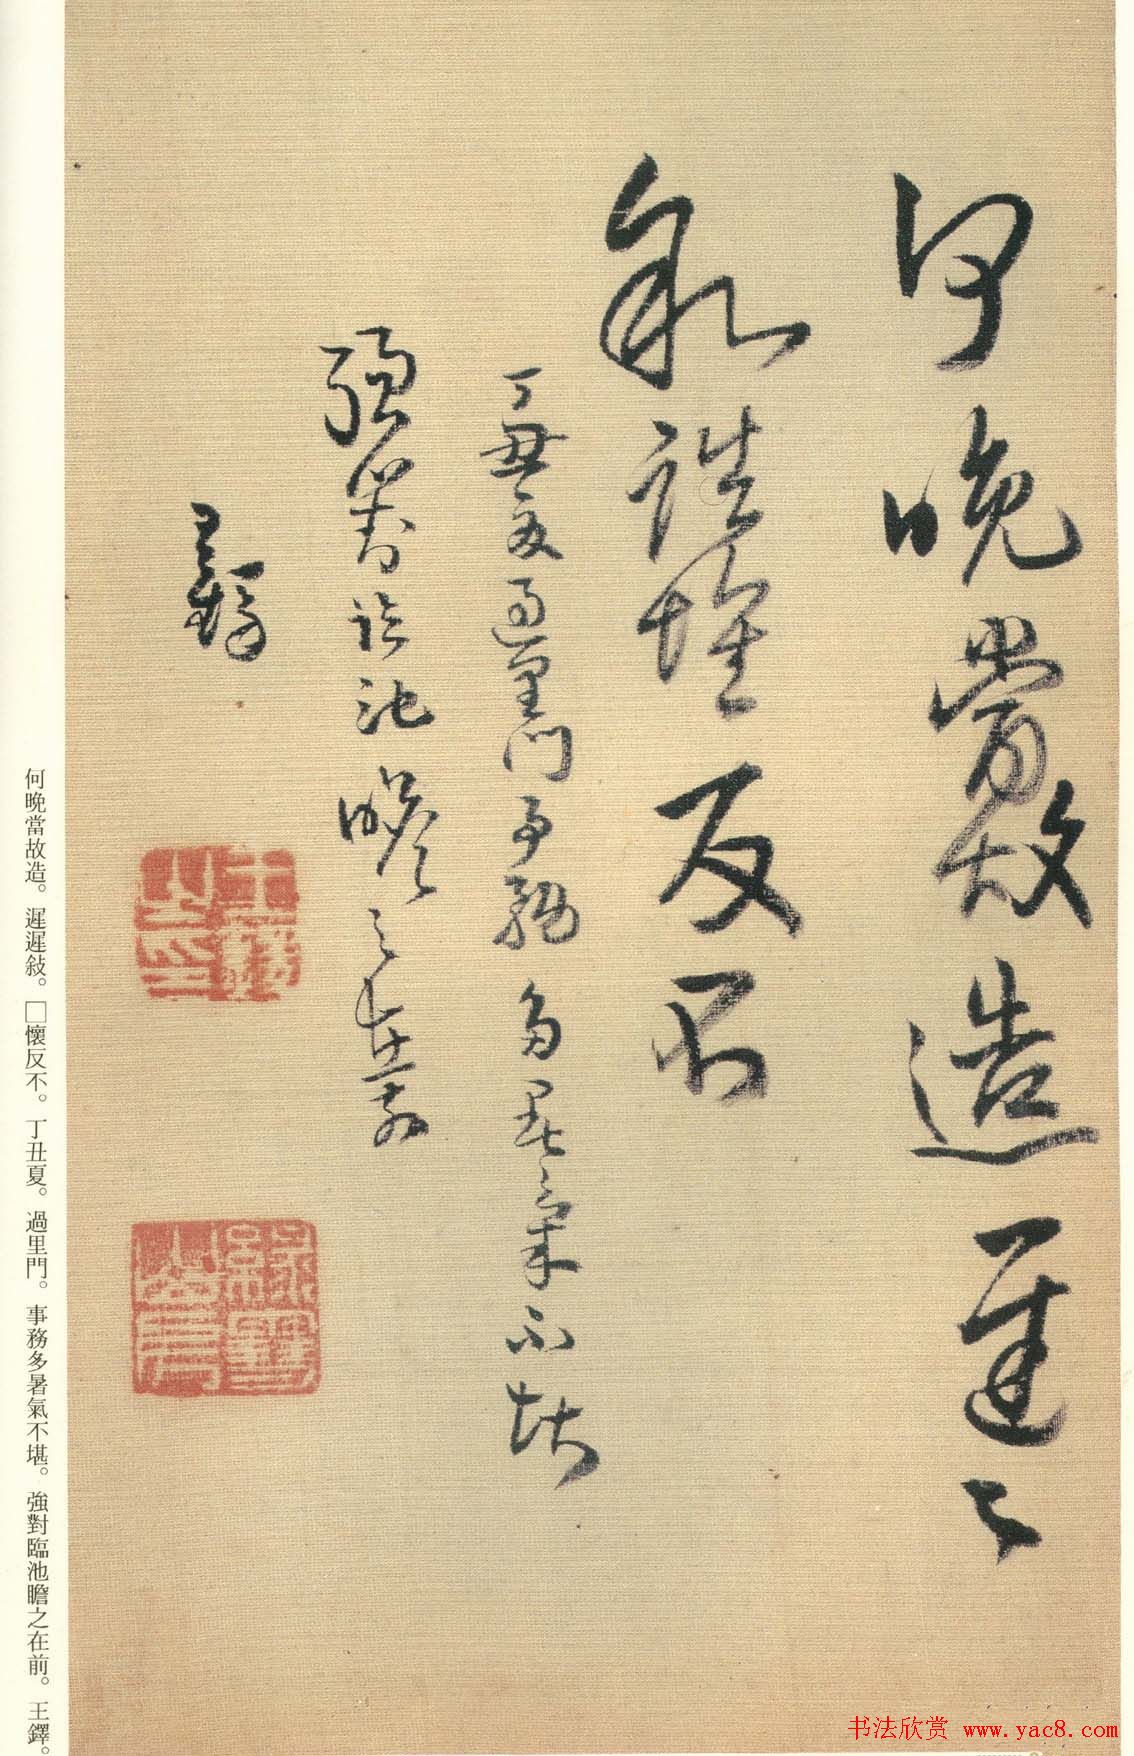 何晚當故造遲〻
敍反不
丁丑夏過里門事務多暑氣不堪
強對臨池瞻之在前
王鐸
王鐸之印
何晚當故造。遲遲敍。□懷反不。丁丑夏。過里門。事務多暑氣不堪。強對臨池瞻之在前。王鐸。
书法欣赏 www.yac8.com